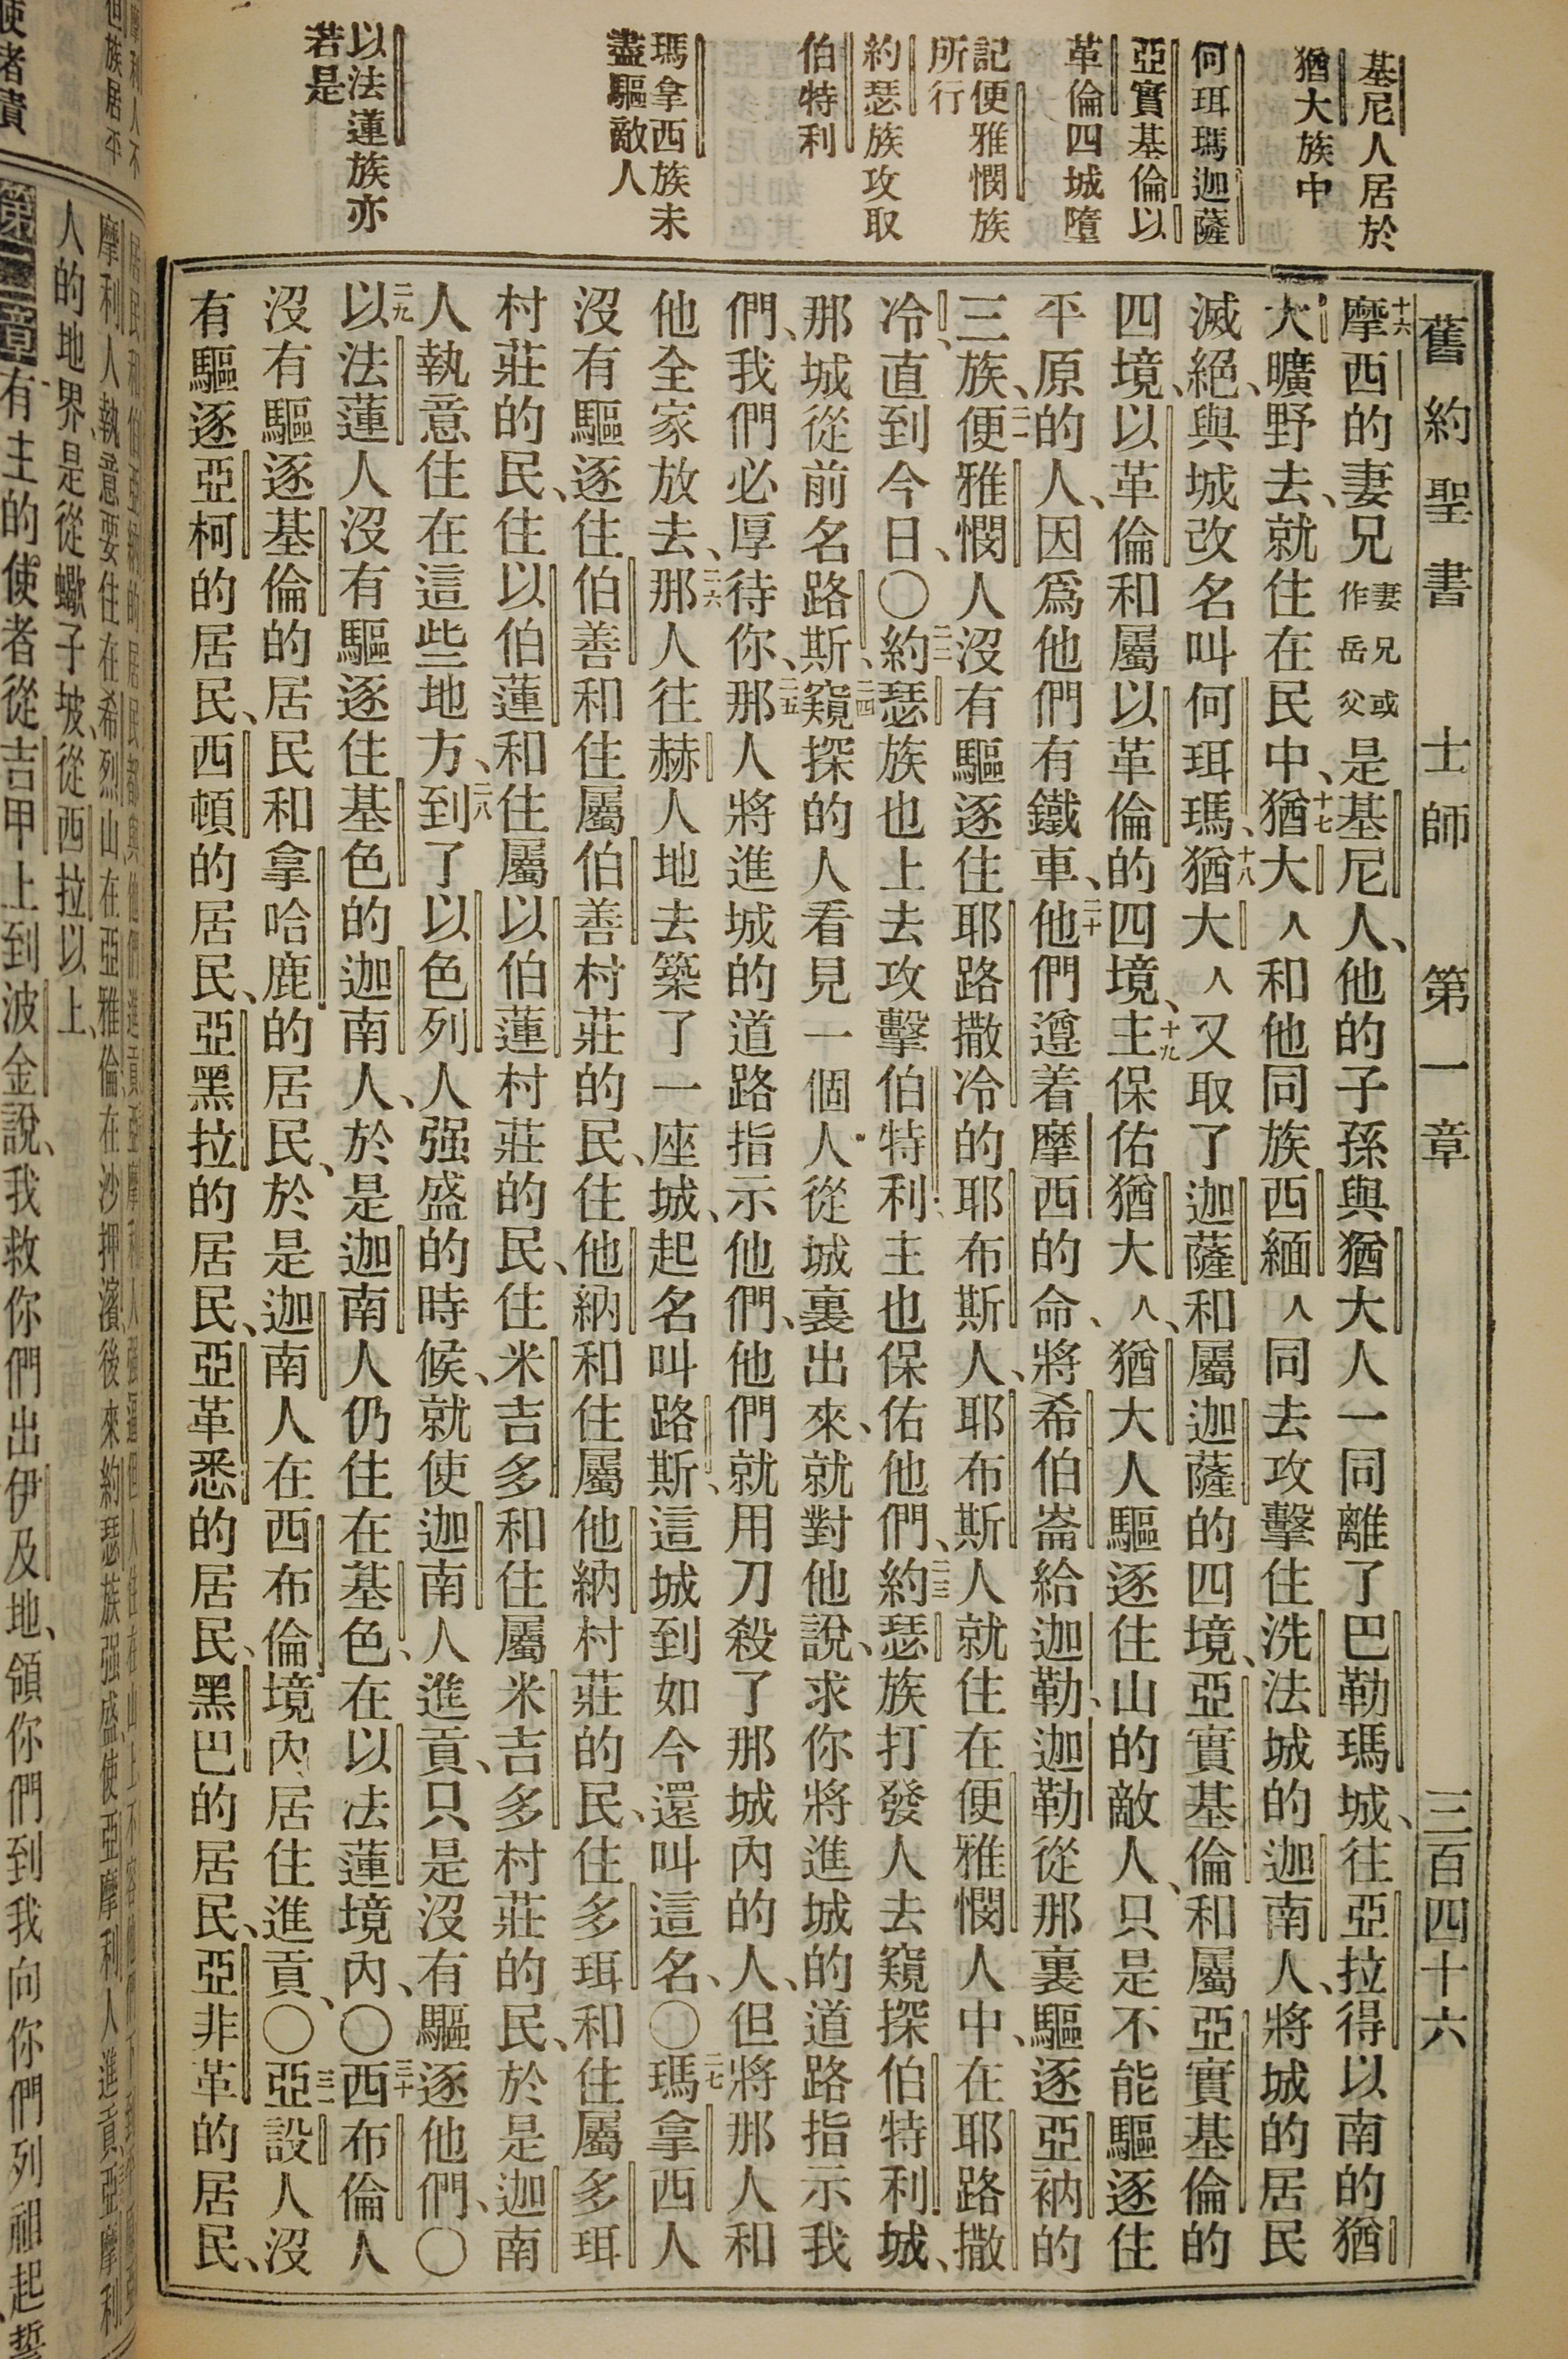 基尼人居於
猶大族中
何珥瑪迦薩
亞實基倫以
革倫四城墮
記便雅憫族
所行
約瑟族攻取
伯特利
瑪拿西族未
盡驅敵人
以法蓮族亦
若是
舊約聖書 士師 第一章 三百四十六
十六摩西的妻兄妻兄或作岳父是基尼人、他的子孫與猶大人一同離了巴勒瑪城、往亞拉得以南的猶
大曠野去、就住在民中、十七猶大人和他同族西緬人同去攻擊住洗法城的迦南人、將城的居民
滅絕、與城改名叫何珥瑪、十八猶大人又取了迦薩和屬迦薩的四境、亞實基倫和屬亞實基倫的
四境、以革倫和屬以革倫的四境、十九主保佑猶大人、猶大人驅逐住山的敵人、只是不能驅逐住
平原的人、因爲他們有鐵車、二十他們遵着摩西的命、將希伯崙給迦勒、迦勒從那裏驅逐亞衲的
三族、二一便雅憫人沒有驅逐住耶路撒冷的耶布斯人、耶布斯人就住在便雅憫人中、在耶路撒
冷、直到今日、〇二二約瑟族也上去攻擊伯特利主也保佑他們、二三約瑟族打發人去窺探伯特利城、
那城從前名路斯、二四窺探的人看見一個人從城裏出來、就對他說、求你將進城的道路指示我
們、我們必厚待你、二五那人將進城的道路指示他們、他們就用刀殺了那城內的人、但將那人和
他全家放去、二六那人往赫人地去築了一座城、起名叫路斯、這城到如今還叫這名、〇二七瑪拿西人
沒有驅逐住伯善和住屬伯善村莊的民、住他納和住屬他納村莊的民、住多珥和住屬多珥
村莊的民、住以伯蓮和住屬以伯蓮村莊的民、住米吉多和住屬米吉多村莊的民、於是迦南
人執意住在這些地方、二八到了以色列人强盛的時候、就使迦南人進貢、只是沒有驅逐他們、〇
二九以法蓮人沒有驅逐住基色的迦南人、於是迦南人仍住在基色、在以法蓮境內、〇三十西布倫人
沒有驅逐基倫的居民和拿哈鹿的居民、於是迦南人在西布倫境內居住進貢、〇三一亞設人沒
有驅逐亞柯的居民、西頓的居民、亞黑拉的居民、亞革悉的居民、黑巴的居民、亞非革的居民、
摩利人執意要住在希烈山在亞雅倫在沙押濱、後來約瑟族强盛、使亞摩利人進貢、亞摩利
人的地界是從蠍子坡、從西拉以上、
有主的使者從吉甲上到波金說、我救你們出伊及地、領你們到我向你們列祖起誓